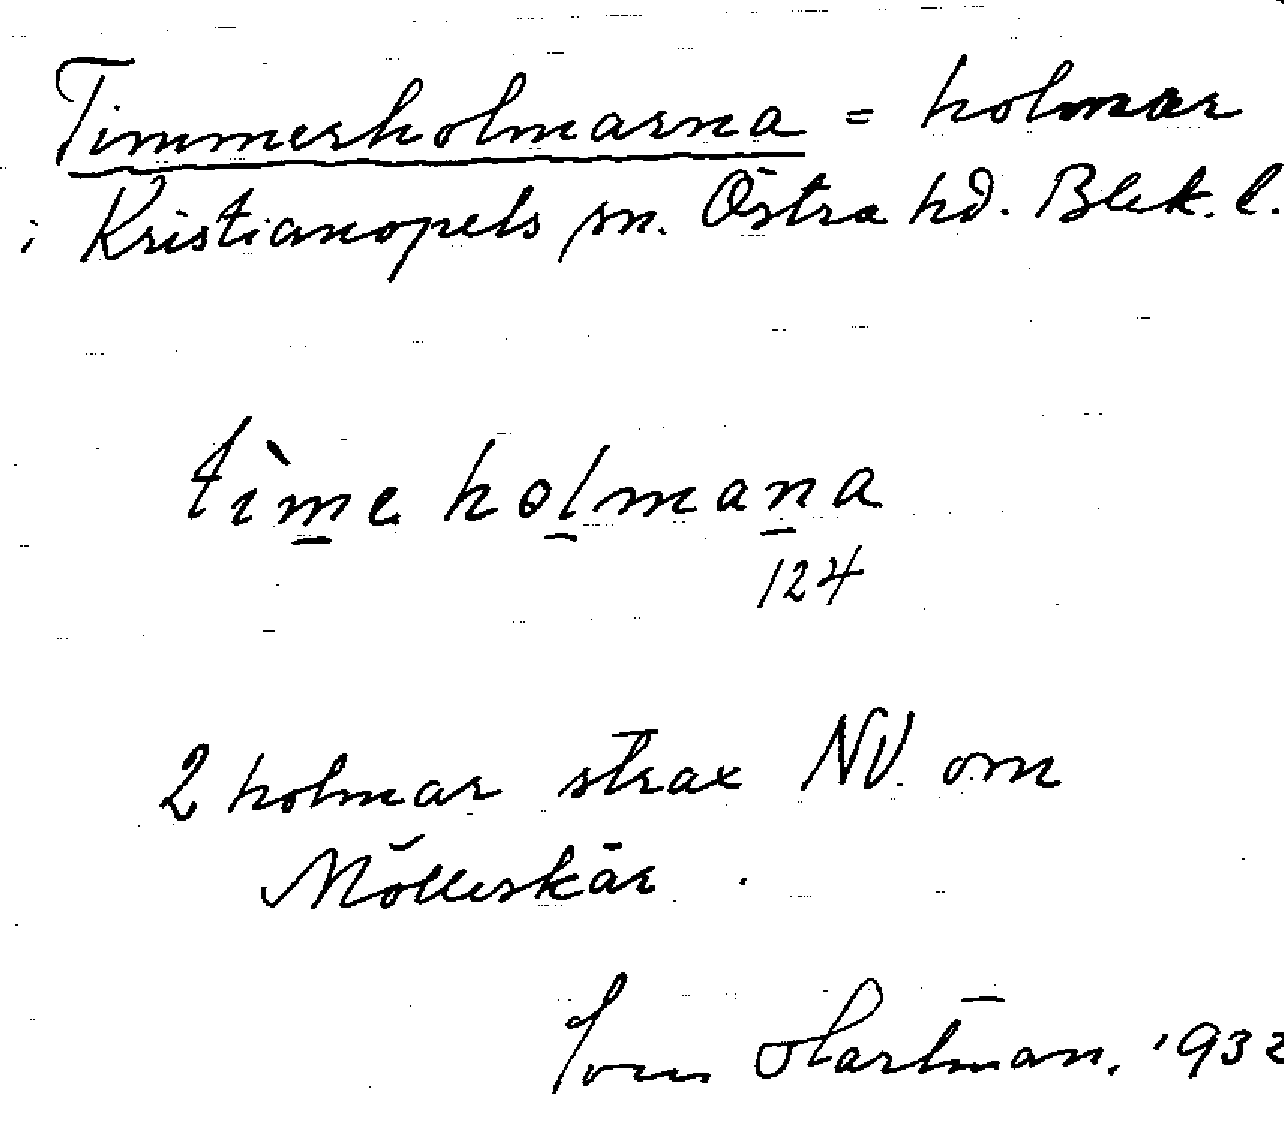 Timmerholmarna = holmar
i Kristianopels sn. Östra hd. Blek. l.
tìme holmana
124
2 holmar strax NV. om
Mölleskär.
Hartman. 1932